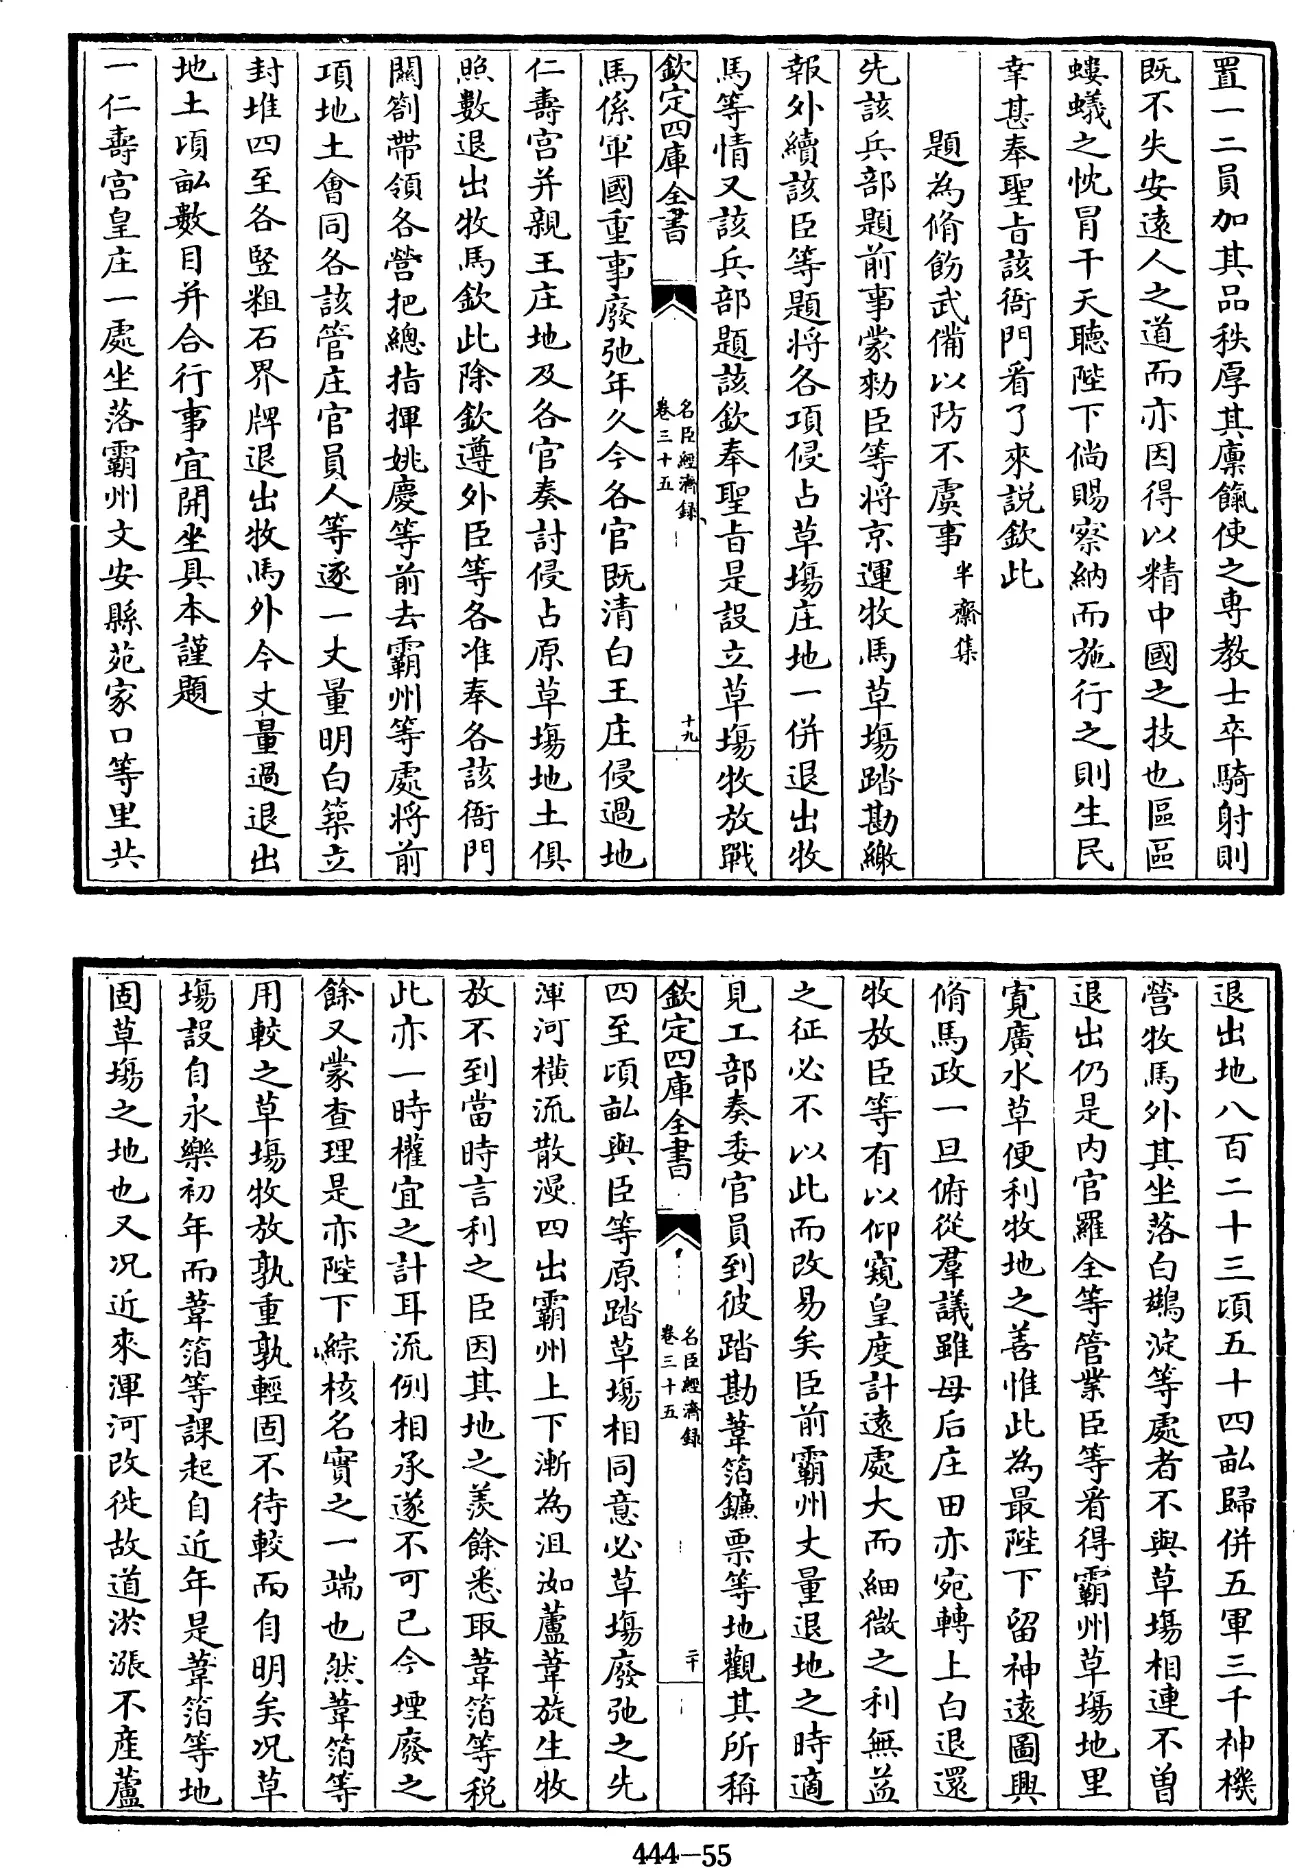 置一二員加其品秩厚其廪餼使之専教士卒騎射則
既不失安逺人之道而亦因得以精中國之技也區區
螻蟻之忱冒干天聽陛下倘賜察納而施行之則生民
幸甚奉聖旨該衙門看了來説欽此
題為脩飭武備以防不虞事半齋集
先該兵部題前事蒙勑臣等將京運牧馬草塲踏勘繳
報外續該臣等題將各項侵占草塲庄地一併退出牧
馬等情又該兵部題該欽奉聖旨是設立草塲牧放戰
欽定四庫全書
名臣經濟録
卷三十五
十九
馬係軍國重事廢弛年久今各官既清白王庄侵過地
仁夀宫并親王庄地及各官奏討侵占原草塲地土俱
照數退出牧馬欽此除欽遵外臣等各准奉各該衙門
關劄帶領各營把總指揮姚慶等前去霸州等處將前
項地土會同各該管庄官員人等逐一丈量明白築立
封堆四至各竪粗石界牌退出牧馬外今丈量過退出
地土頃畝數目并合行事宜開坐具本謹題
一仁夀宫皇庄一處坐落霸州文安縣苑家口等里共
退出地八百二十三頃五十四畝歸併五軍三千神機
營牧馬外其坐落白鷀淀等處者不與草塲相連不曽
退出仍是内官羅全等管業臣等看得霸州草塲地里
寛廣水草便利牧地之善惟此為最陛下留神逺圖興
脩馬政一旦俯從羣議雖母后庄田亦宛轉上白退還
牧放臣等有以仰窺皇度計逺處大而細微之利無益
之征必不以此而改易矣臣前霸州丈量退地之時適
見工部奏委官員到彼踏勘葦箔鐮票等地觀其所稱
欽定四庫全書
名臣經濟録
卷三十五
二十
四至頃畝與臣等原踏草塲相同意必草塲廢弛之先
渾河横流散漫四出霸州上下漸為沮洳蘆葦旋生牧
放不到當時言利之臣因其地之羡餘悉取葦箔等税
此亦一時權宜之計耳流例相承遂不可已今堙廢之
餘又蒙查理是亦陛下綜核名實之一端也然葦箔等
用較之草塲牧放孰重孰輕固不待較而自明矣况草
塲設自永樂初年而葦箔等課起自近年是葦箔等地
固草塲之地也又况近來渾河改徙故道淤漲不産蘆
444—55